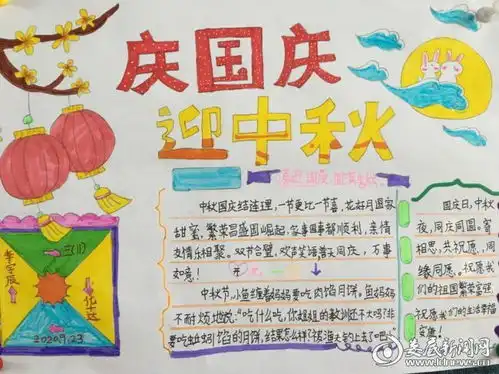 庆国庆
迎中秋
中秋国庆结连理,一节更比一节喜,花好月圆容
甜蜜,繁荣昌盛国崛起,客事国事都顺利,亲情
友情乐相聚。双节合璧,欢节笑语普天同庆,万事
如意!
中秋节,小鱼缠着妈妈要吃肉馅月饼,鱼妈妈
不耐烦地说:“吃什么吃,你姐姐的教训还不大吗?非
要吃蚯蚓馅的月饼,结果怎么样?被渔夫钓上去了
国庆日,中秋
夜,周庆周圆,
相思,共祝愿,
缘同愿。祝愿我
们的祖国繁荣富强
祝愿我们的生活幸福
安康!
三(11)
李宇辰
化士达
2020.9.23
娄底新闻网
www.ldnews.cn